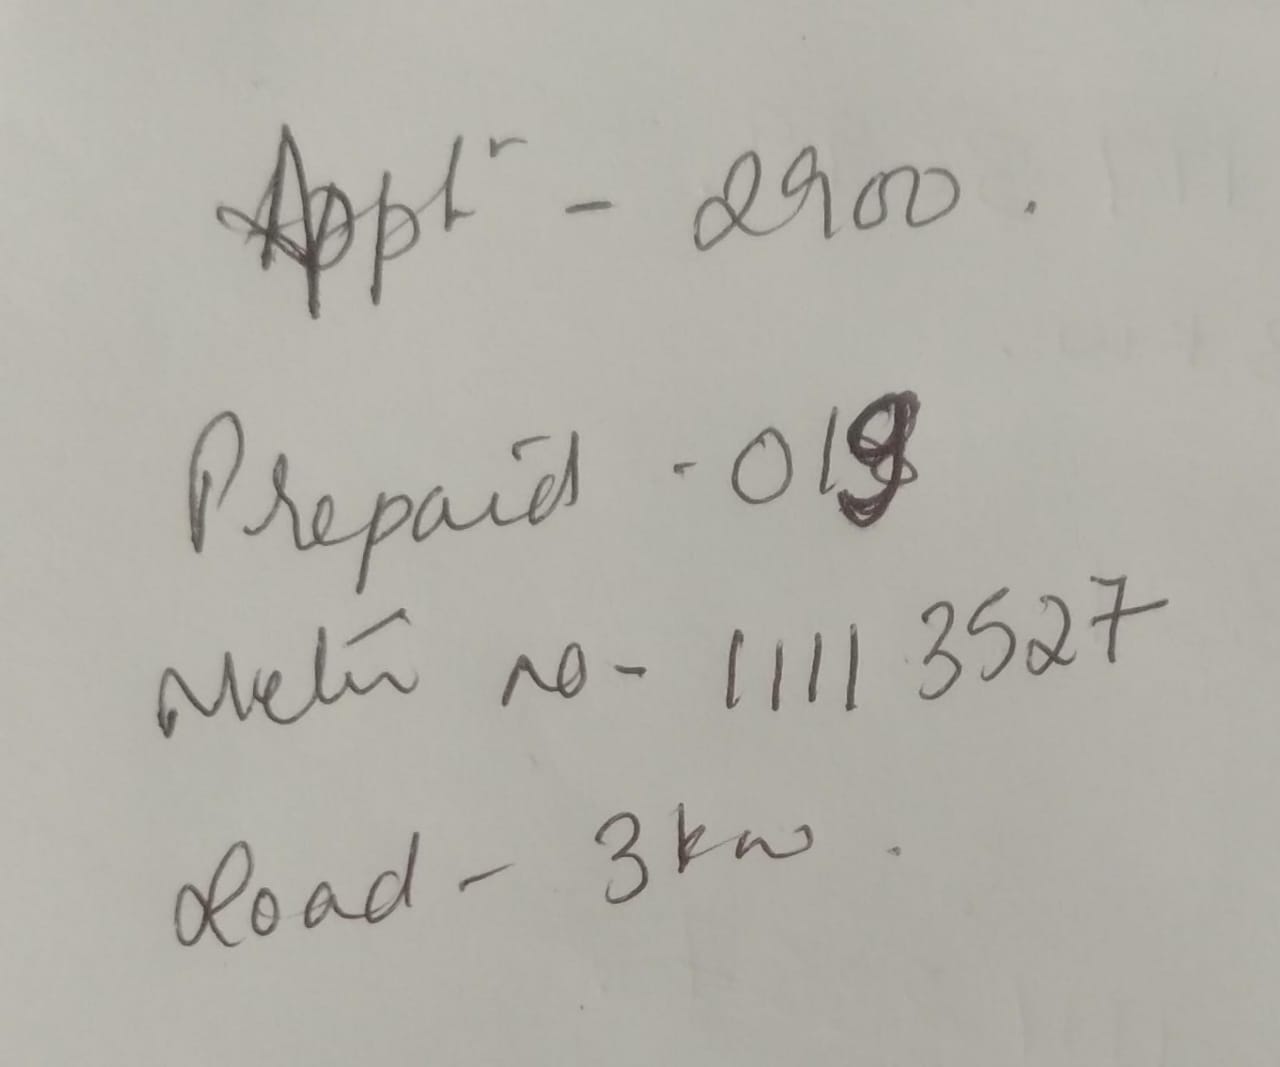 Appl^r - 2900.
Prepaid - 019
Meter no - 1111 3527
Load - 3 kw.